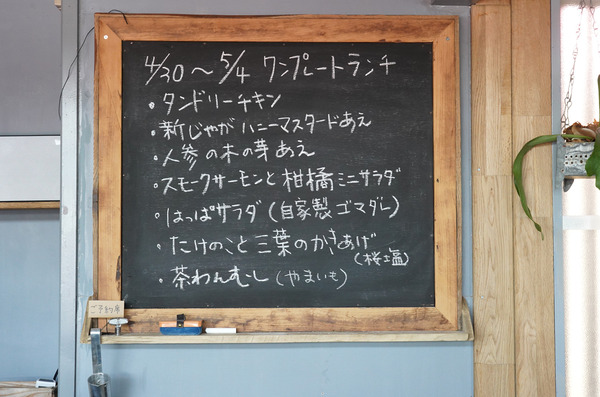 4/30～5/4 ワンプレートランチ
・タンドリーチキン
・新じゃがハニーマスタードあえ
・人参の木の芽あえ
・スモークサーモンと柑橘ミニサラダ
・はっぱサラダ(自家製ゴマダレ)
・たけのこと三葉のかきあげ
(桜塩)
・茶わんむし(やまいも)
ご予約席